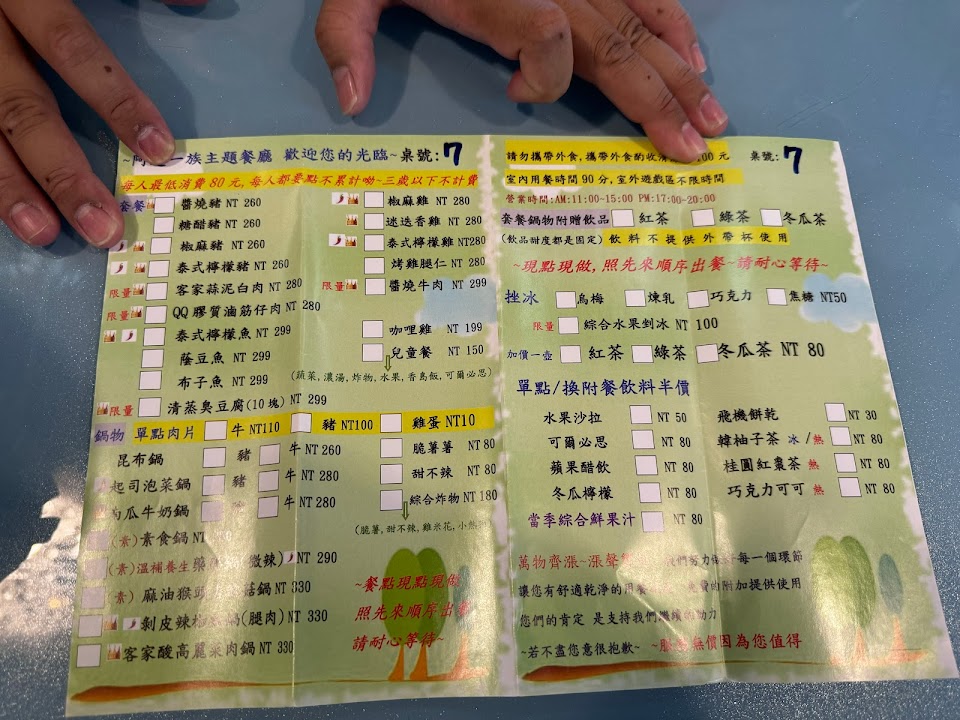 ~阿 一族主題餐廳 歡迎您的光臨~桌號:7
每人最低消費 80 元,每人都要點不累計呦~三歲以下不計費
套餐 醬燒豬 NT 260
糖醋豬 NT 260
椒麻豬 NT 260
泰式檸檬豬 NT 260
限量 客家蒜泥白肉 NT 280
限量 QQ膠質滷筋仔肉 NT 280
泰式檸檬魚 NT 299
蔭豆魚 NT 299
布子魚 NT 299
限量 清蒸臭豆腐(10塊) NT 299
椒麻雞 NT 280
迷迭香雞 NT 280
泰式檸檬雞 NT280
烤雞腿仁 NT 280
限量 醬燒牛肉 NT 299
咖哩雞 NT 199
兒童餐 NT 150
(蔬菜,濃湯,炸物,水果,香島飯,可爾必思)
鍋物 單點肉片 牛 NT110 豬 NT100 雞蛋 NT10
昆布鍋 豬 牛 NT 260
起司泡菜鍋 豬 牛 NT 280
南瓜牛奶鍋 豬 牛 NT 280
(素)素食鍋 NT
(素)溫補養生藥 微辣) NT 290
(素)麻油猴頭 菇鍋 NT 330
剝皮辣椒 鍋(腿肉) NT 330
客家酸高麗菜肉鍋 NT 330
脆薯薯 NT 80
甜不辣 NT 80
綜合炸物 NT 180
(脆薯,甜不辣,雞米花,小熱狗
~餐點現點現做
照先來順序出餐
請耐心等待~
請勿攜帶外食,攜帶外食酌收清 00 元 桌號:7
室內用餐時間 90 分,室外遊戲區不限時間
營業時間:AM:11:00~15:00 PM:17:00~20:00
套餐鍋物附贈飲品 紅茶 綠茶 冬瓜茶
(飲品甜度都是固定) 飲料不提供外帶杯使用
~現點現做,照先來順序出餐~請耐心等待~
挫冰 烏梅 煉乳 巧克力 焦糖 NT50
限量 綜合水果剉冰 NT 100
加價一壺 紅茶 綠茶 冬瓜茶 NT 80
單點/換附餐飲料半價
水果沙拉 NT 50
可爾必思 NT 80
蘋果醋飲 NT 80
冬瓜檸檬 NT 80
當季綜合鮮果汁 NT 80
飛機餅乾 NT 30
韓柚子茶 冰/熱 NT 80
桂圓紅棗茶 熱 NT 80
巧克力可可 熱 NT 80
萬物齊漲~漲聲 我們努力 每一個環節
讓您有舒適乾淨的用餐 免費的附加提供使用
您們的肯定 是支持我們繼續的動力
~若不盡您意很抱歉~ ~服務無價因為您值得